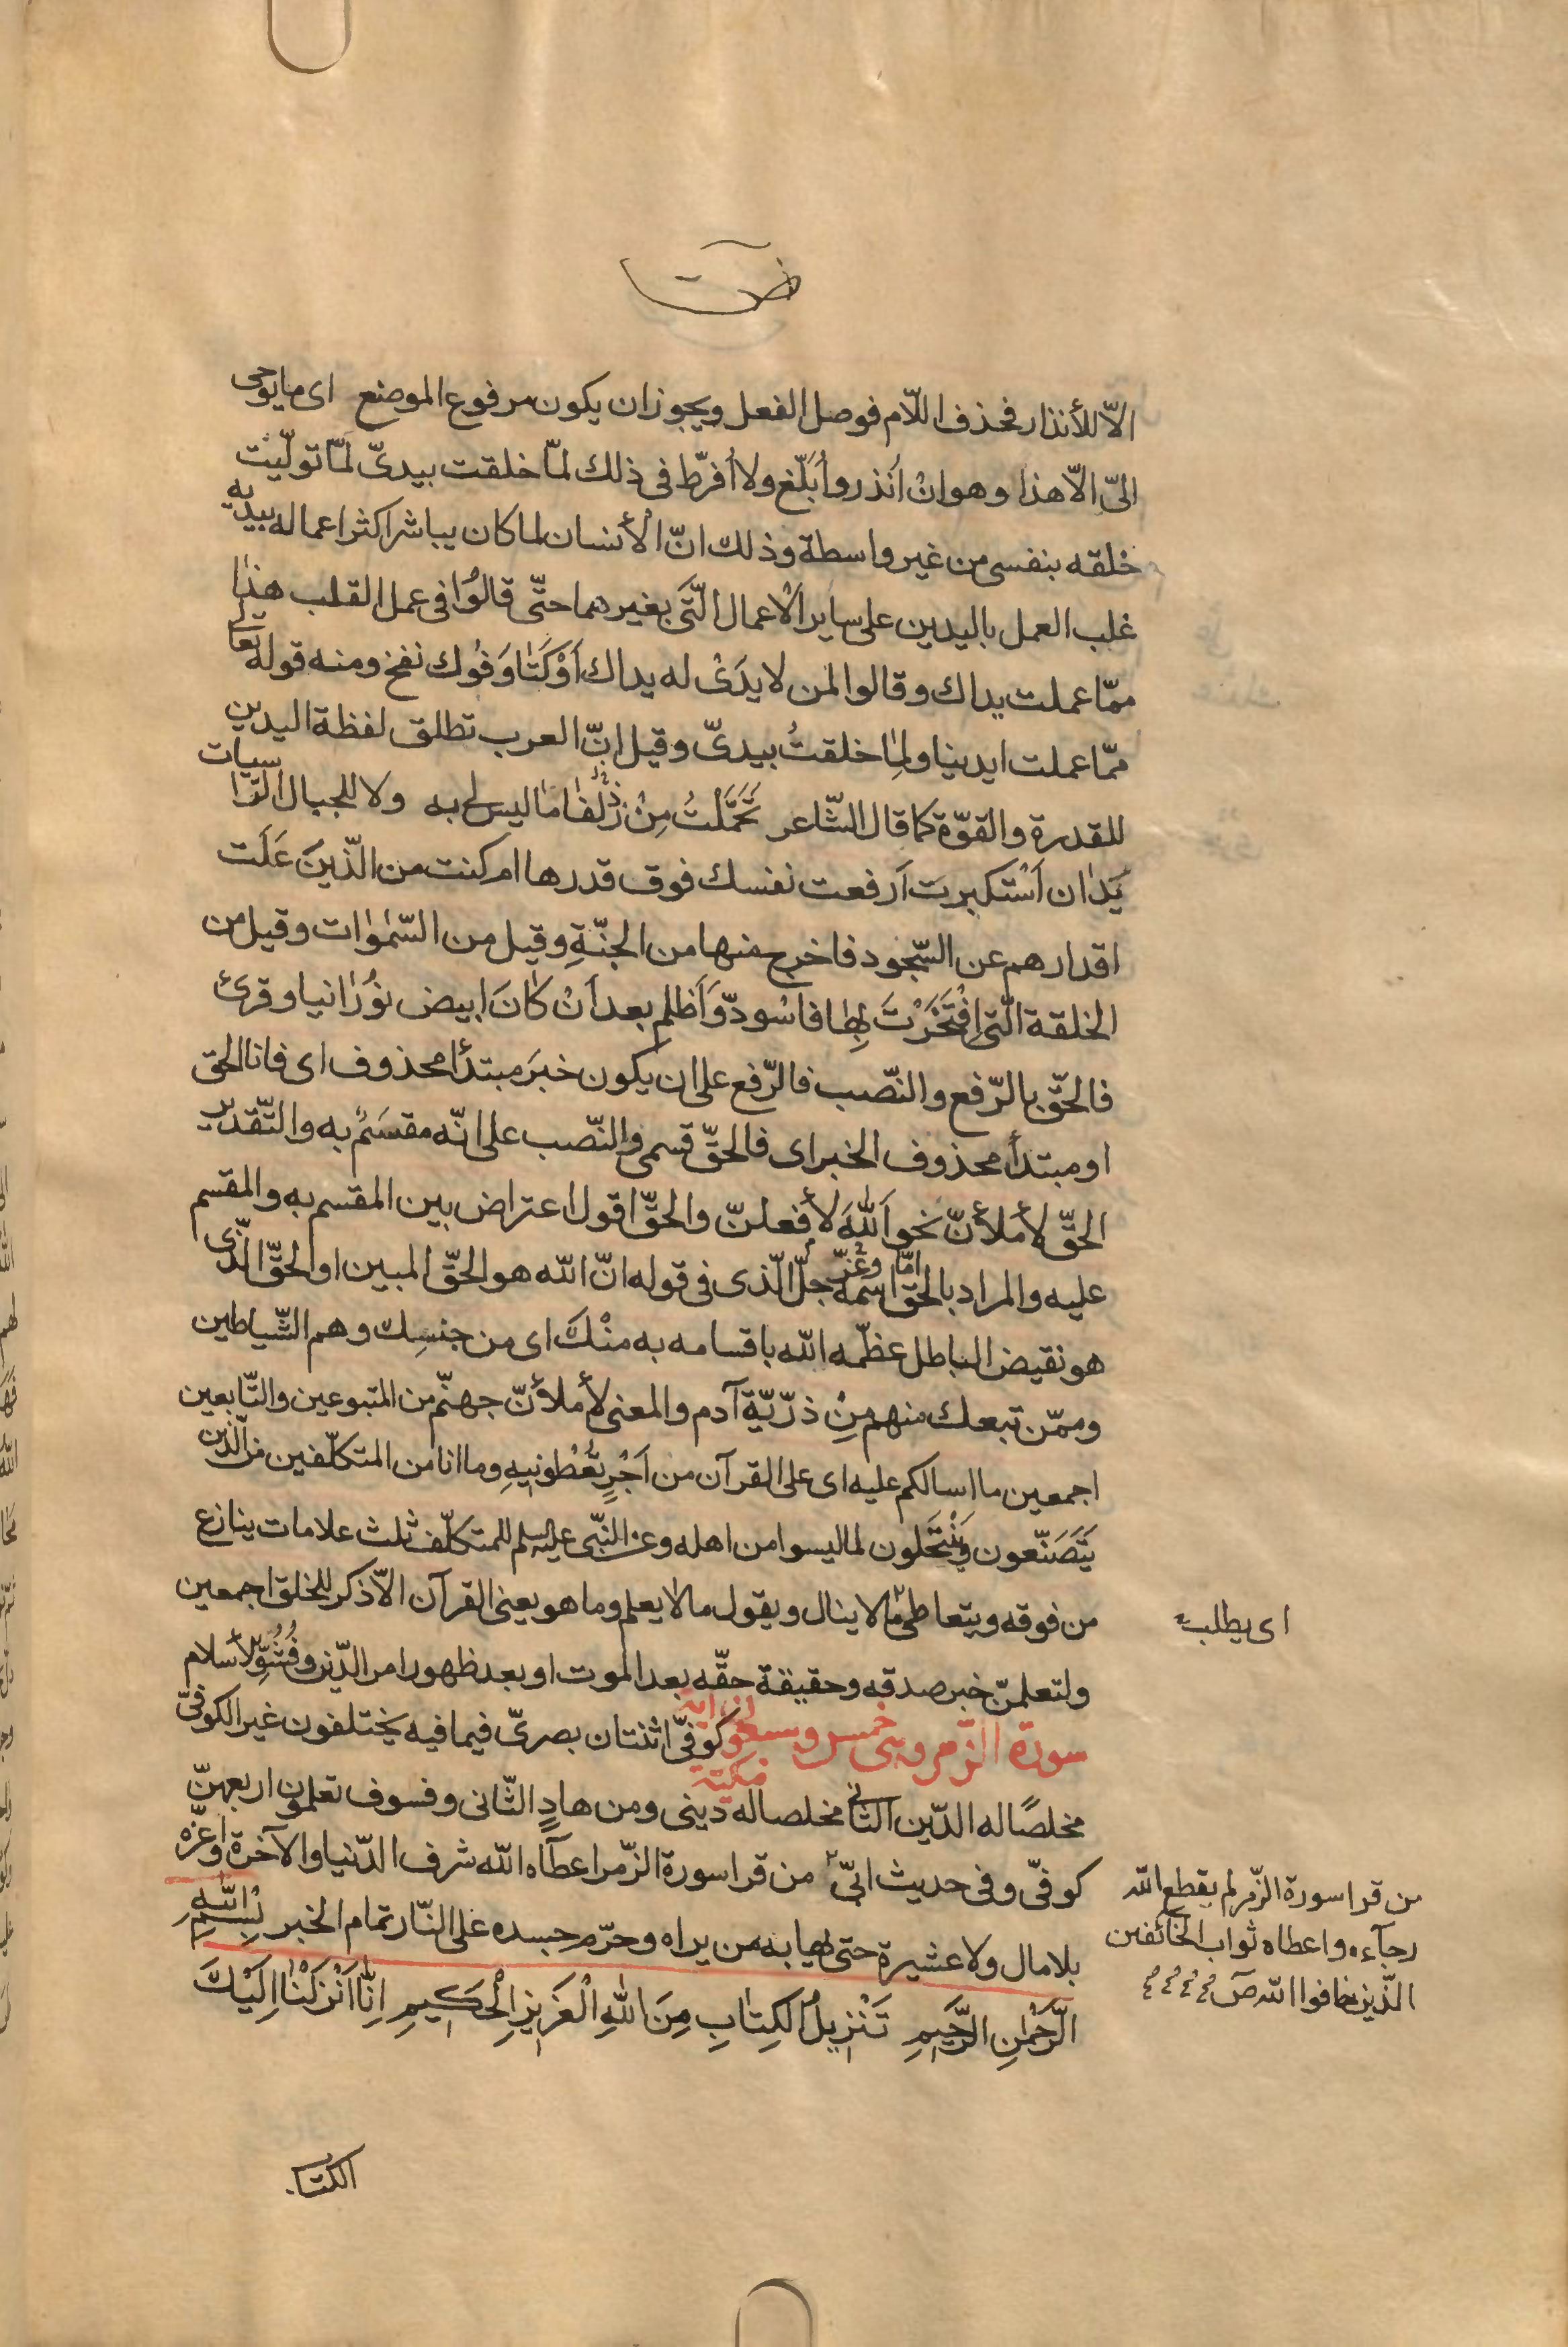 الاّ للأنذار فحذف اللّام فوصل الفعل ويجوز ان يكون مرفوع الموضع اى مايوحى
الىّ الاّ هذا وهو ان اُنذر واُبَلّغ ولا اُفرّط فى ذلك لمّا خلقت بيدىّ لمّا تولّيت
خلقه بنفسى من غير واسطة وذلك انّ الأنسان لما كان يباشر اكثر اعماله بيديه
غلب العمل باليدين على ساير الأعمال الّتى بغيرهما حتّى قالوُا فى عمل القلب هذا
ممّا عملت يداك وقالوا لمن لا يدَىْ له يداك اَوْكَتٰا وَفوُك نفخ ومنه قوله تعالى
ممّا عملت ايدينا ولِمٰا خلقتُ بيدىّ وقيل انّ العرب تطلق لفظة اليدين
للقدرة والقوّة كما قال الشّاعر تَحَمَّلْتُ مِنْ ذَلْفٰا مٰا ليس لى به ولا للجبال الرّاسيات
يَدٰان اَسْتكبرت اَرفعت نفسك فوق قدرها ام كنت من الّذينَ عَلَت
اقدارهم عن السّجود فاخرج منها من الجنّةِ وقيل من السّمٰوٰات وقيل من
الخلقة الّتى افْتَخَرْتَ بِهٰا فاسْودّ وَاَظلم بعد اَنْ كٰانَ ابيض نوُرٰانيا وقرئ
فالحقّ بالرّفع والنّصب فالرّفع على ان يكون خبَر مبتدأ محذوف اى فانا الحق
او مبتدأ محذوف الخبر اى فالحقّ قسمى والنّصب على انّه مقسَمٌ به والتّقدير
الحقّ لأملأنّ نحو اَللّٰهَ لأفعلنّ والحقّ اقول اعتراض بين المقسم به والمقسم
عليه والمراد بالحقّ امّا اسمه عزّ وجلّ الّذى فى قوله انّ الله هو الحقّ المبين او الحقّ الّذى
هو نقيض الباطل عظّمه الله باقسامه به منْكَ اى من جنسِك وهم الشّياطين
وممّن تبعك منهم مِنْ ذرّيّة آدم والمعنى لأملأنّ جهنّم من المتبوعين والتّابعين
اجمعين ما اسالكم عليه اى على القرآن من اَجْرٍ تُعْطونيهِ وما انا من المتكلّفين من الّذين
يَتَصَنّعون وَيَنْتَحَلون لما ليسوا من اهله وعن النّبى عليه السلم للمتكلّف ثلث علامات ينازع
من فوقه ويتعاطى مٰا لا ينال ويقول ما لا يعلم وما هو يعنى القرآن الاّ ذكر للخلق اجمعين
اى يطلب
ولتعلمنّ خبر صدقه وحقيقة حقّه بعد الموت او بعد ظهور امر الدّين وفُشُوِّ الأسلام
سورة الزّمر وهى خمس وسبعون اية مكيّة كوفىّ اثنتان بصرىّ فيما فيه يختلفون غير الكوفىّ
مخلصًا له الدّين الثانى مخلصا له دينى ومن هادٍ الثّانى وفسوف تعلمون اربعهنّ
كوفىّ وفى حديث ابىّ من قرا سورة الزّمر اعطاه الله شرف الدّنيا والآخرة واعزّه
بلا مال ولا عشيرة حتى يهابه من يراه وحرّم جسده على النّار تمام الخبر بِسْمِ اللّٰهِ
الرَّحْمٰنِ الرَّحيمِ تَنْزيلُ الكِتٰابِ مِنَ اللّٰهِ الْعَزيزِ الْحَكيمِ اِنّٰا اَنْزَلْنٰا اِلَيْكَ
من قرا سورة الزّمر لم يقطع الله
رجآءه واعطاه ثواب الخائفين
الّذين خافوا الله
الكتاب